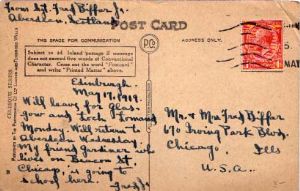 From Lt. Fred Biffar Jr.
Aberdeen, Scotland
POST CARD
THE SPACE FOR COMMUNICATION
ADDRESS ONLY.
Subject to ½d. Inland postage if message
does not exceed five words of conventional
character. Cross out the word "Postcard" and
write "Printed Matter" above.
Edinburgh.
May 17, 1919.
Will leave for Glas-
gow and Loch Lomand
Monday. Will return to
Aberdeen Wednesday,
my friend Gardener who
lives on Beacon St
Chicago, is going to
school here. Fred Jr
Mr. & Mrs Fred Biffar
670 Irving Park Blvd.
Chicago, Ills
U.S.A.
CELESQUE SERIES